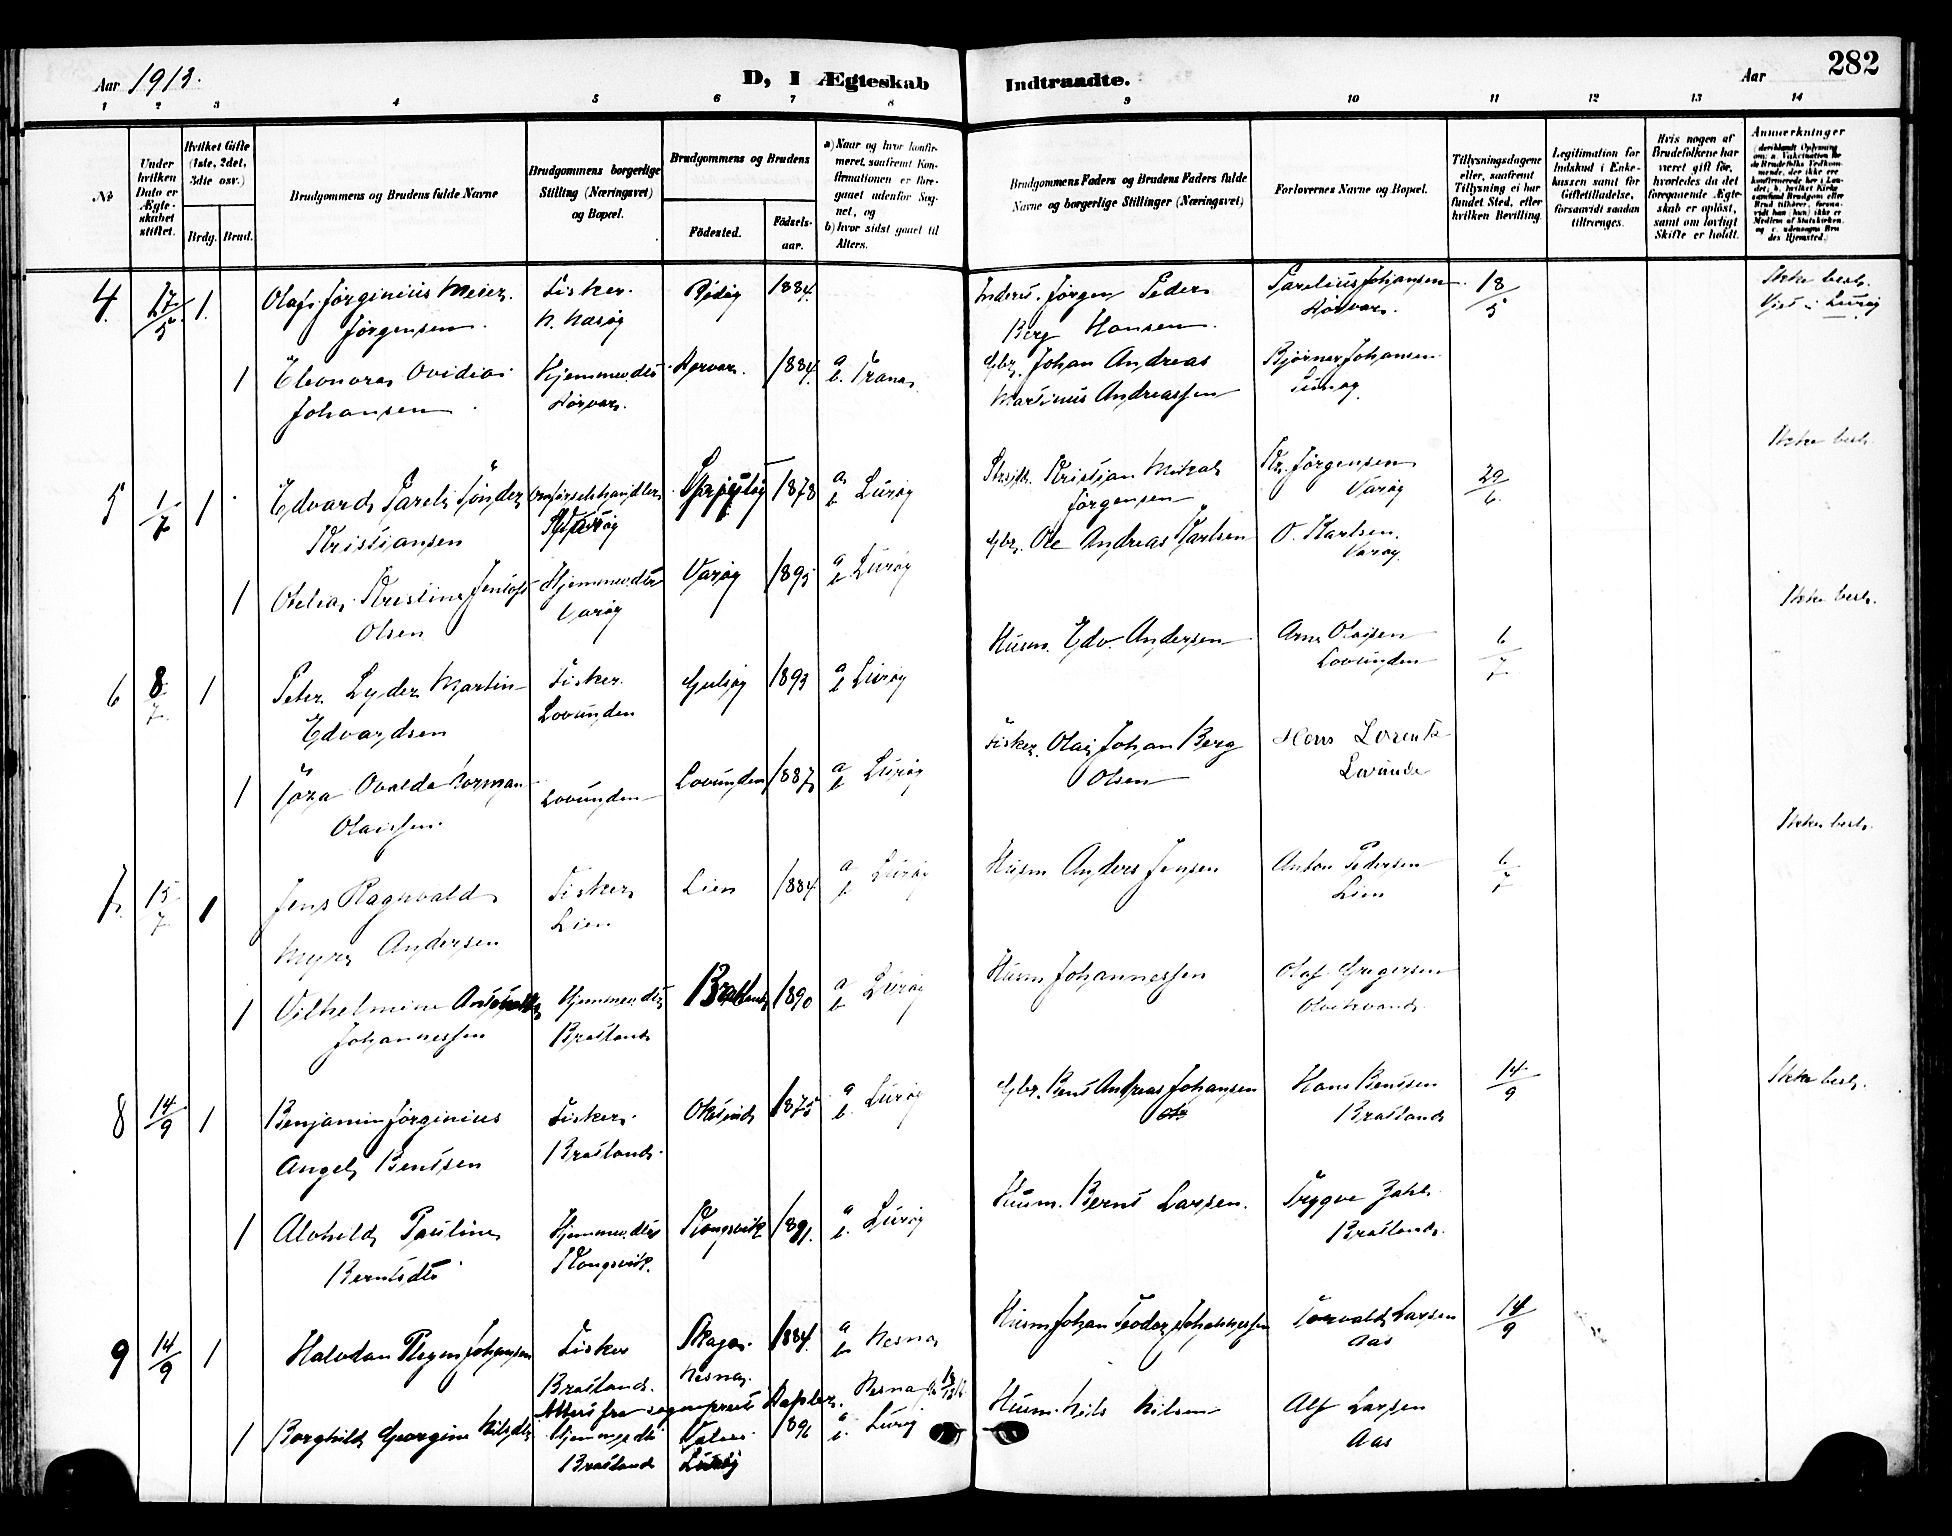 Aar 1913.
D, I Ægteskab Indtraadte.
Aar 282
1 2 3 4 5 6 7 8 9 10 11 12 13 14
No
Under hvilken Dato er Ægteskabet stiftet.
Hvilket Gifte (1ste, 2det, 3dte osv.)
Brdg. Brud.
Brudgommens og Brudens fulde Navne
Brudgommens borgerlige Stilling (Næringsvei) og Bopæl.
Brudgommens og Brudens
Fødested. Fødsels-aar.
a) Naar og hvor konfirmeret, saafremt Konfirmationen er foregaaet udenfor Sognet, og
b) hvor sidst gaaet til Alters.
Brudgommens Faders og Brudens Faders fulde Navne og borgerlige Stillinger (Næringsvei)
Forlovernes Navne og Bopæl.
Tillysningsdagene eller, saafremt Tillysning ei har fundet Sted, efter hvilken Bevilling.
Legitimation for Indskud i Enkekassen samt for Giftetilladelse, forsaavidt saadan tiltrænges.
Hvis nogen af Brudefolkene har været gift før, hvorledes da det foregaaende Ægteskab er opløst, samt om lovligt Skifte er holdt.
Anmerkninger
4. 17/5 1. Olaf Jørginius Meier Jørgensen Fisker. N. Næsøy Rødøy 1884. Jørgen Peder Berg Hansen. Parelius Johansen Hørvær. 18/5 Ikke besl. Viet i Lurøy
1 Eleonora Ovidia Johansen Hjemmev. dtr Hørvær. 1884. a b. Træna Gbr. Johan Andreas Martinus Andreassen Bjørner Johansen
5 1/7 1 Edvard Pareli Tønder Kristiansen Varøy 1878 a b Lurøy Kristian Mikal Jørgensen Kr. Jørgensen Varøy 29/6. Ikke besl.
1 Otelia Kristine Jentoft Olsen Hjemmev. dtr Varøy Varøy 1895 a b. Lurøy Gbr. Ole Andreas Karlsen O. Karlsen. Varøy
6 8/7. 1 Peter Lyder Martin Edvardsen Fisker. Lovunden 1893 a b Lurøy Husm. Edv. Andersen Arne Olaisen Lovunden 6/7 Ikke besl.
1 Ovalda Norman Olaissen. Lovunden Lovunden 1887 a b Lurøy Fisker. Olai Johan Berg Olsen Hans Lorentz Lovunde
7. 15/7. 1 Jens Ragnvald Myre Andersen Fisker Lien Lien 1884 a b Lurøy Husm Anders Jensen Anton Pedersen Lien 6/7 Ikke besl.
1 Vilhelmine Johannessen Hjemmev. dtr Bratland Bratland 1890 a b Lurøy Husm Johannessen Olaf Gregersen
8 14/9 1 Benjamin Jørginius Angel Bentsen Fisker. Bratland. 1875 a b. Lurøy Gbr. Bent Andreas Johansen Hans Bentsen Bratland 14/9 Ikke besl.
1 Alvhild Pauline Berntsdtr Hjemmev. dtr Kongsvik. Kongsvik 1891. a b. Lurøy Husm. Bernt Larsen. Trygve Zahl. Bratland.
9 14/9 1 Halvdan Johansen Fisker Bratland. Skaga. Nesna. 1884. a b Nesna Husm Johan Teodor Johannessen Torvald Larsen Aas 14/9
Attest fra sogneprest Nesna
1 Borghild Georgine Nilsdtr Hjemmev. dtr Bratland Lurøy 1896 a b. Lurøy Husm. Nils Nilsen Alf Larsen Aas